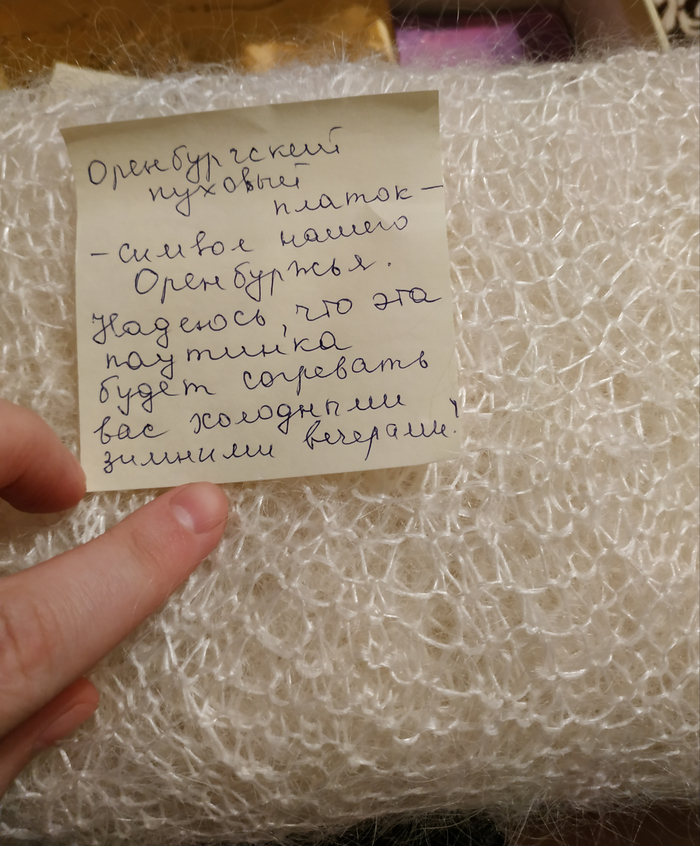 Оренбургский
пуховый
платок –
– символ нашего
Оренбуржья.
Надеюсь, что эта
паутинка
будет согревать
вас холодными
зимними вечерами!